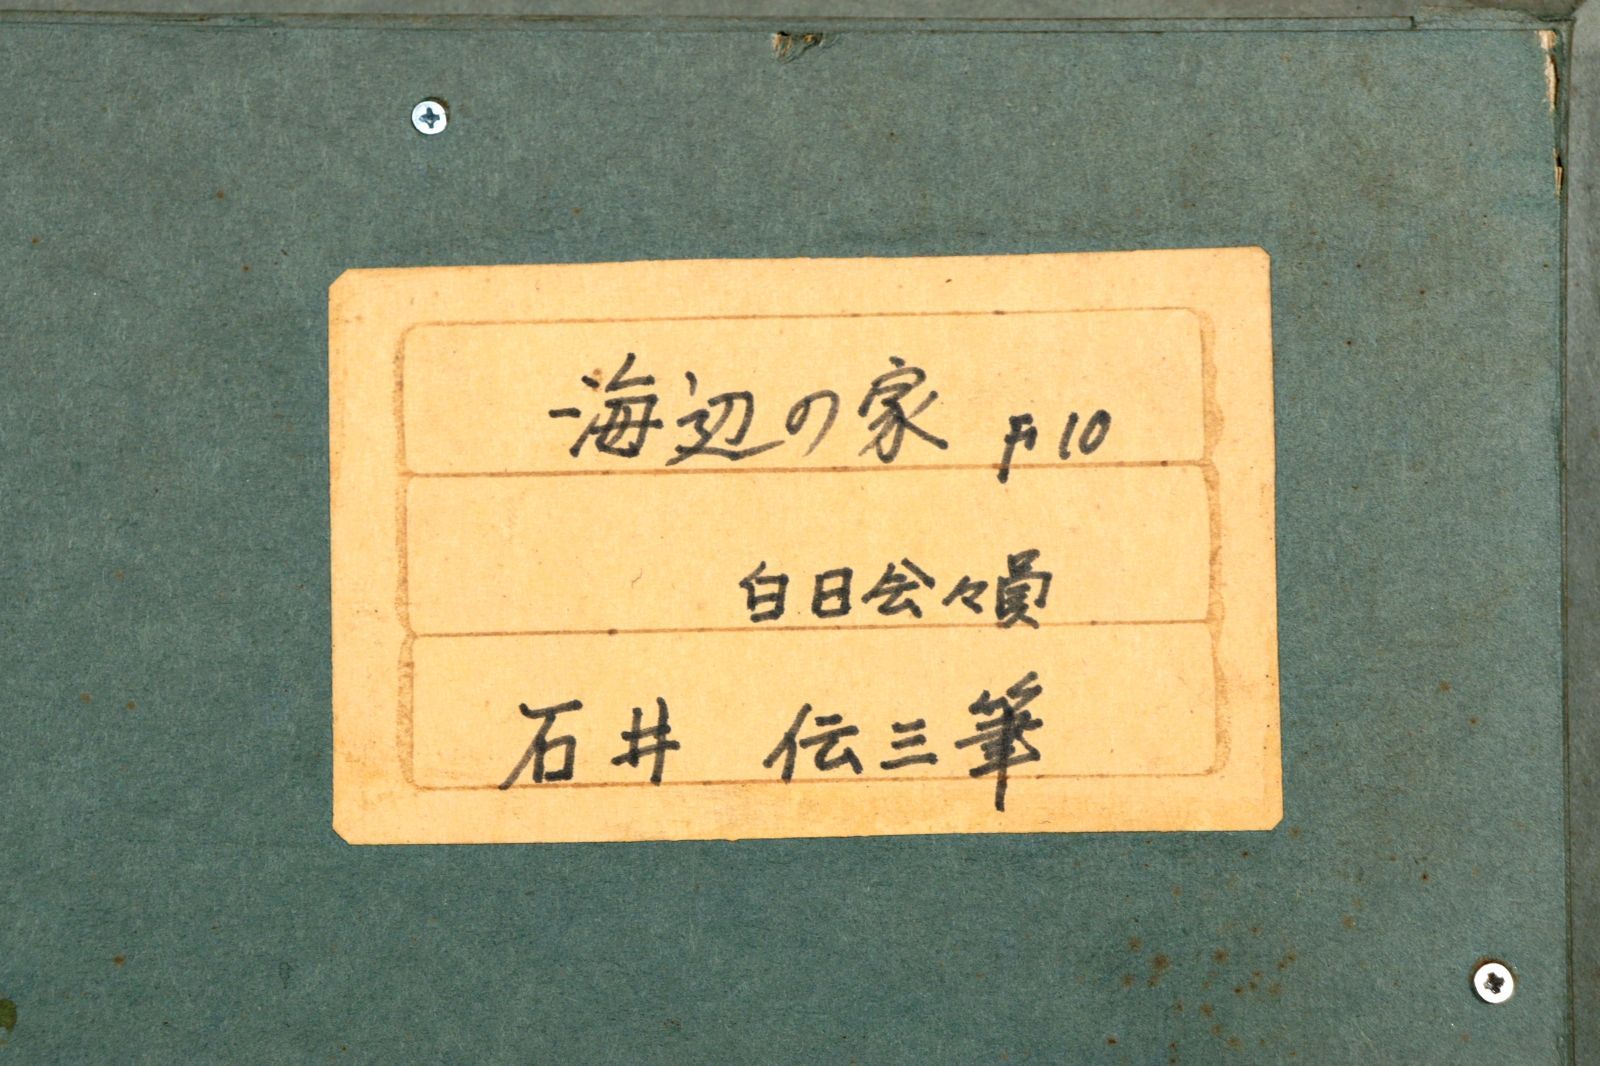 海辺の家 F10
白日会々員
石井 伝三筆